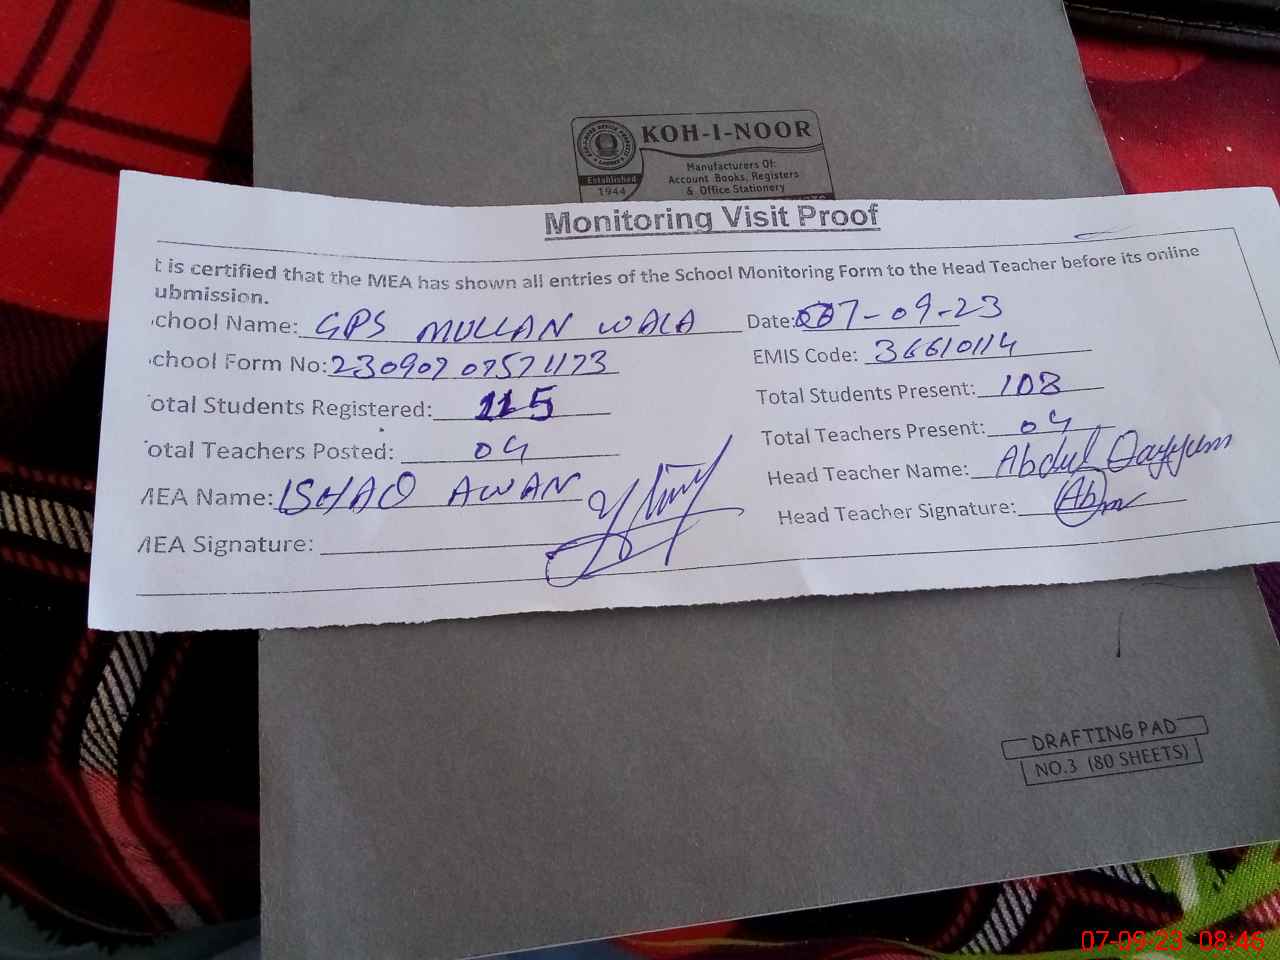 KOH-I-NOOR
Manufacturers Of:
Account Books, Registers
& Office Stationery
Established
1944
Monitoring Visit Proof
t is certified that the MEA has shown all entries of the School Monitoring Form to the Head Teacher before its online
ubmission.
chool Name: GPS MULLAN WALA Date: 07-09-23
chool Form No: EMIS Code: 36610114
otal Students Registered: 115 Total Students Present: 108
otal Teachers Posted: 04 Total Teachers Present: 04
MEA Name: ISHAQ AWAN Head Teacher Name: Abdul Qayyum
MEA Signature: Head Teacher Signature:
DRAFTING PAD
NO.3 (80 SHEETS)
07-09-23 08:46